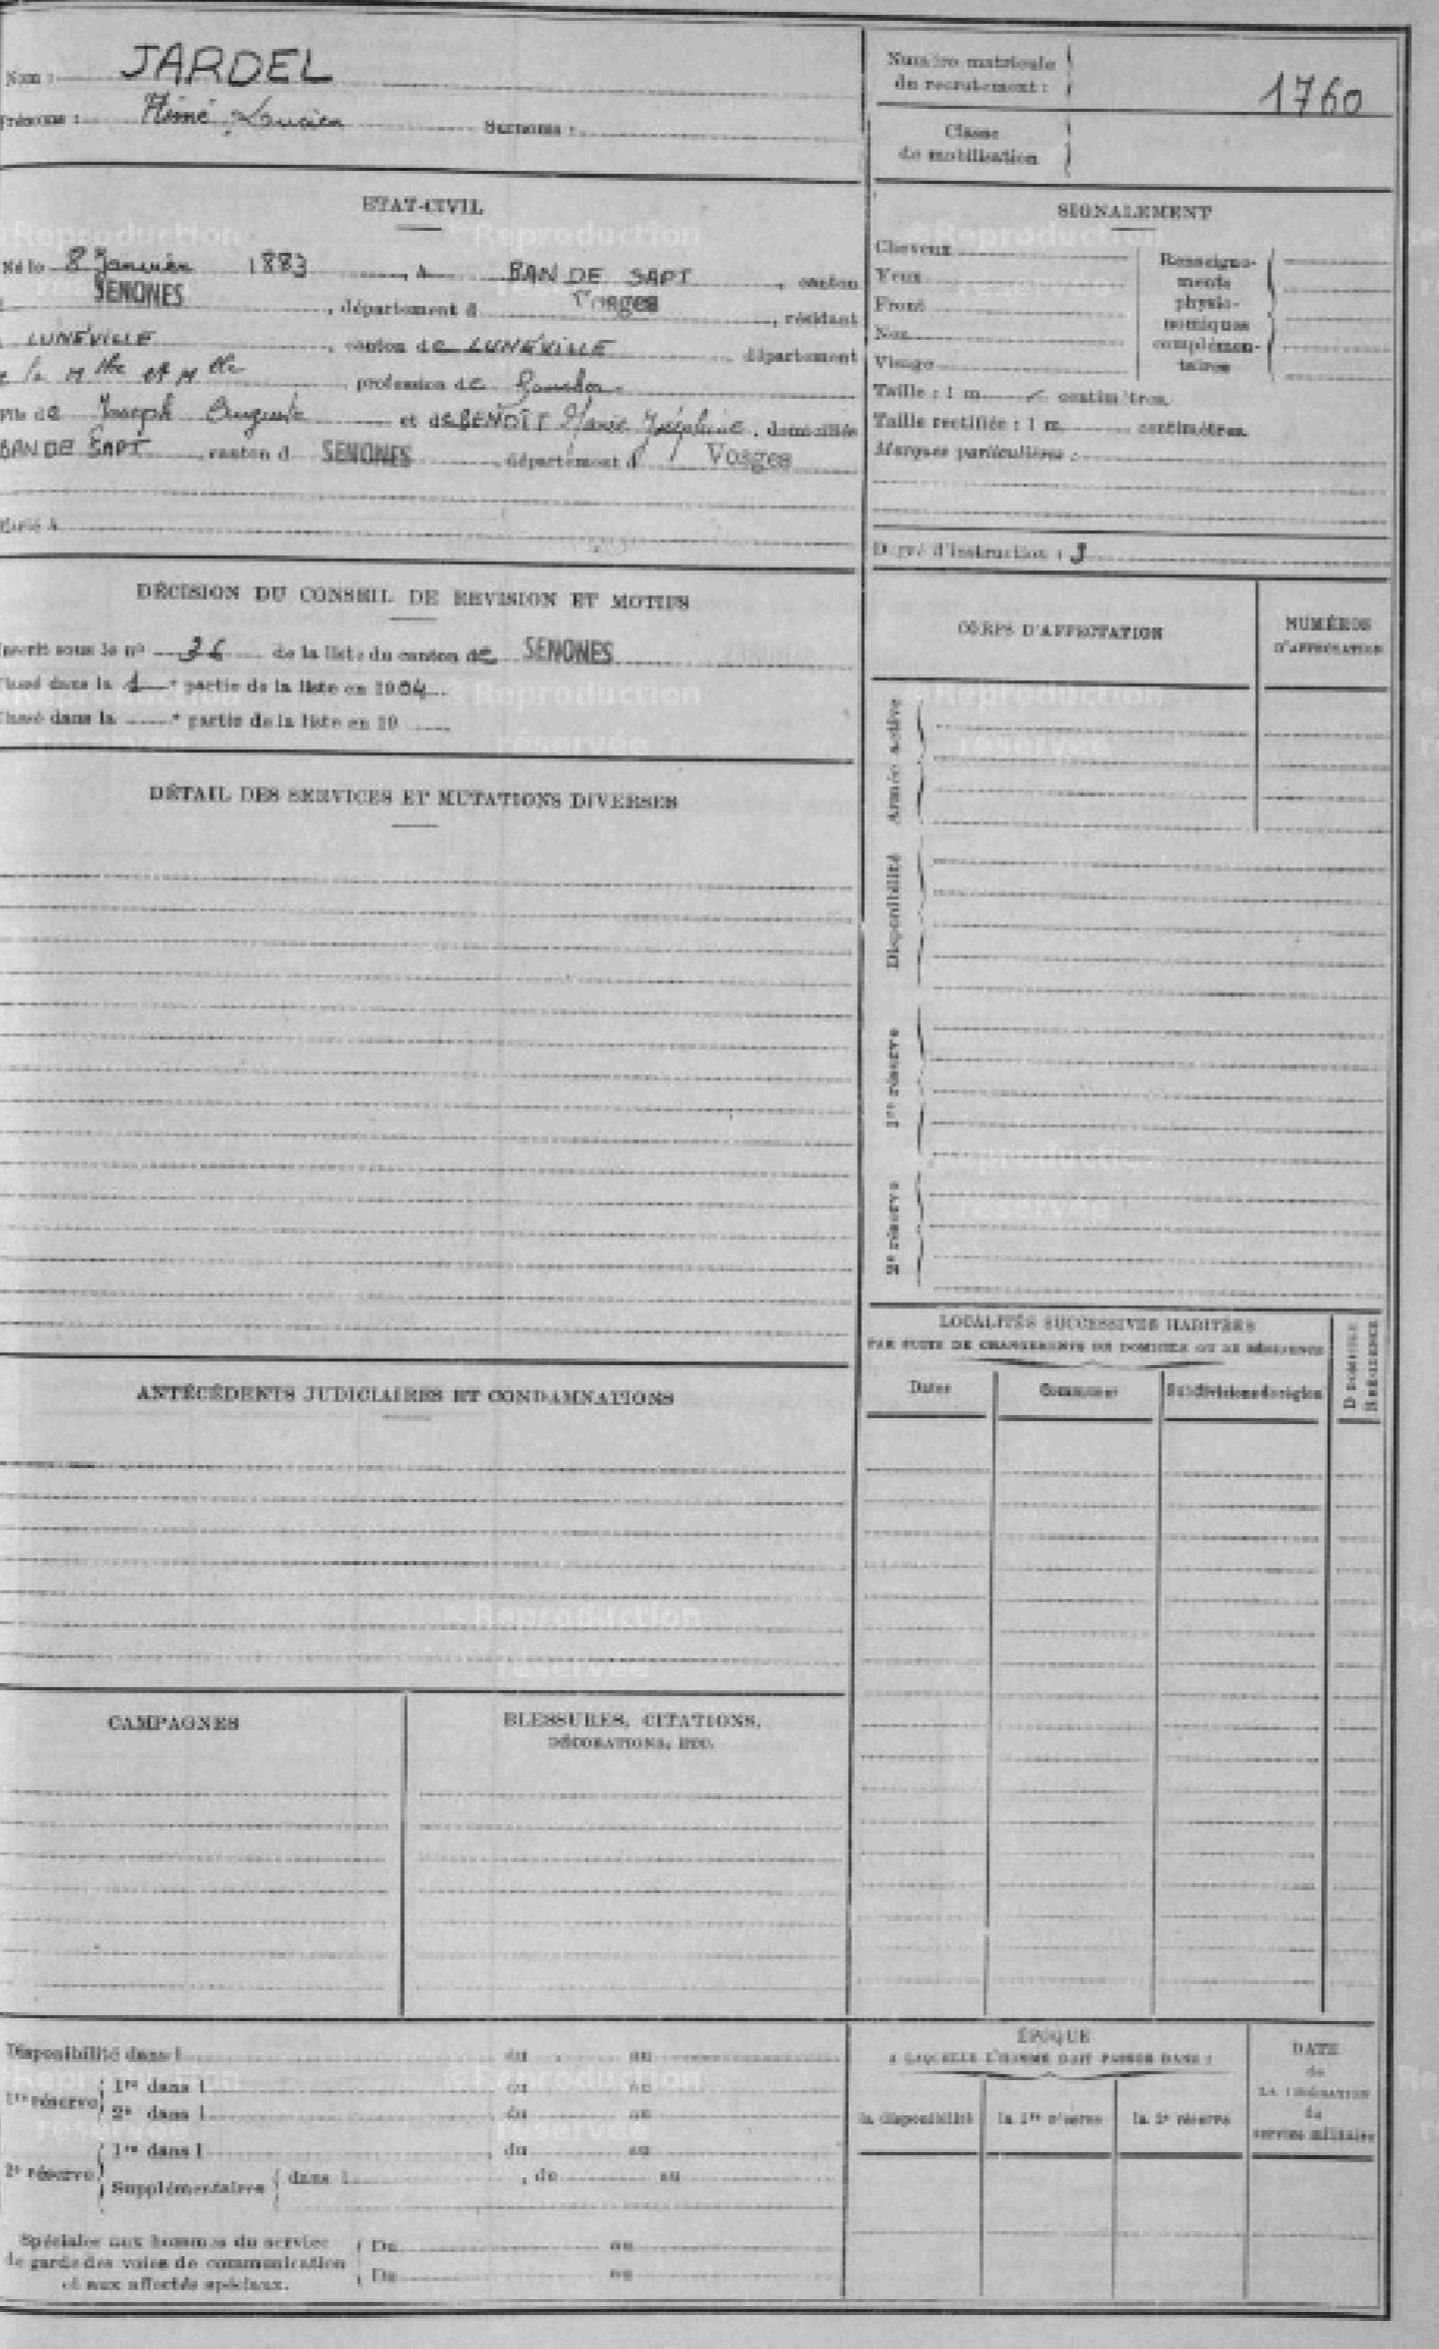 Nom : JARDEL
Prénoms : Aimé, Lucien Surnoms :
Numéro matricule
du recrutement : 1760
Classe
de mobilisation
ETAT-CIVIL
Né le 8 Janvier 1883, à BAN DE SAPT, canton
SENONES, département d Vosges, résidant
LUNÉVILLE, canton de LUNÉVILLE département
de la Mthe et Mlle profession de
Fils de Joseph Auguste et de BENOIT Marie Joséphine, domiciliés
BAN DE SAPT, canton d SENONES, département d Vosges
Marié à
SIGNALEMENT
Cheveux
Yeux
Front
Nez
Visage
Renseigne-
ments
physio-
nomiques
complémen-
taires
Taille : 1 m. centimètres.
Taille rectifiée : 1 m. centimètres.
Marques particulières :
Degré d'instruction : 3
DÉCISION DU CONSEIL DE REVISION ET MOTIFS
Inscrit sous le n° 36 de la liste du canton de SENONES
Classé dans la 1e partie de la liste en 1904
Classé dans la e partie de la liste en 19
CORPS D'AFFECTATION
NUMÉROS
D'AFFECTATION
Armée active
Disponibilité
1re réserve
2e réserve
DÉTAIL DES SERVICES ET MUTATIONS DIVERSES
LOCALITÉS SUCCESSIVES HABITÉES
PAR SUITE DE CHANGEMENTS DE DOMICILE OU DE RÉSIDENCE
Dates Communes Subdivisions de région
D DOMICILE
R RÉSIDENCE
ANTÉCÉDENTS JUDICIAIRES ET CONDAMNATIONS
CAMPAGNES
BLESSURES, CITATIONS,
DÉCORATIONS, ETC.
Disponibilité dans l du au
1re réserve 1re dans l du au
2e dans l du au
2e réserve 1re dans l du au
Supplémentaires dans l, du au
Spéciales aux hommes du service
de garde des voies de communication
et aux affectés spéciaux.
Du au
Du au
ÉPOQUE
A LAQUELLE L'HOMME DOIT PASSER DANS :
la disponibilité la 1re réserve la 2e réserve
DATE
de
LA LIBÉRATION
du
service militaire
©Reproduction
réservée